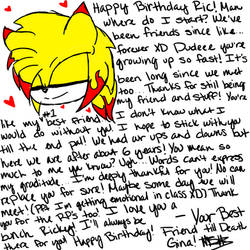 Happy Birthday Ric! Man
where do I start? We've
been friends since like..
forever XD Dudeee you're
growing up so fast! It's
been long since we met
too.. Thanks for still being
my friend and stuff! You're
like my #1 best friend I don't know what I
would do without you! I hope to stick with you
till the end pal! We had ur ups and downs but
here we are after about 6 years! You mean so
much to me
know? Ugh.. Words can't express
my gratidude. I'm deeply thankful for you! No can
replace you for sure! Maybe some day we will
meet (PS I'm getting emotional in class XD) Thank
you for the RP's too! I love you a
bunch Rickey! I'll always be
there for you! Happy Birthday!
- Your Best
Friend till Death
Gina!